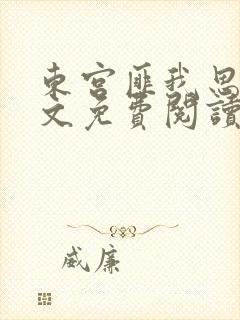 東宮匪我思
文免費閱讀
威廉